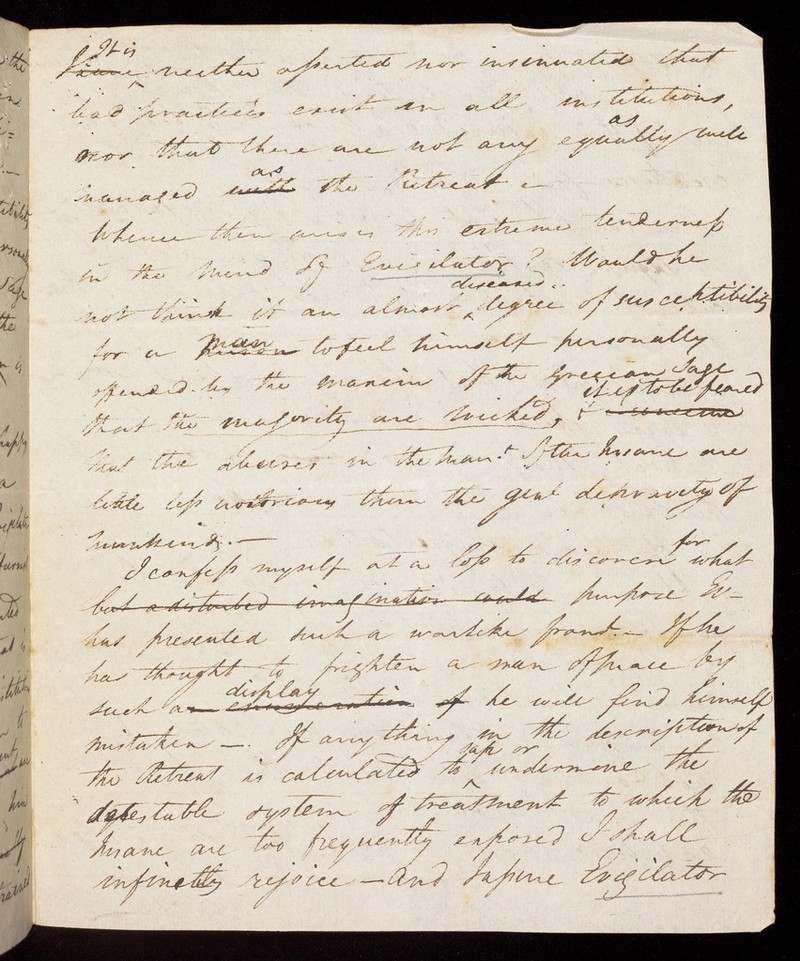 It is
I have neither asserted nor insinuated that
bad practices exist in all institutions,
nor that there are not any equally as well
managed with as the Retreat —
Whence then arises this extreme tenderness
in the mind of Evigilator? Would he
not think it an almost diseased degree of susceptibility
for a person man to feel himself personally
offended by the maxim of the grecian Sage
that the majority are wicked, & it is to be feared
that the abuses in the Man.t of the Insane are
little less notorious than the genl depravity of
mankind. —
I confess myself at a loss to discover for what
but a disturbed imagination could purpose Ev—
has presented such a warlike front. — If he
has thought to frighten a man of peace by
such an enumeration display of he will find himself
mistaken —. If any thing in the description of
the Retreat is calculated to sap or undermine the
detestable system of treatment to which the
Insane are too frequently exposed I shall
infinitely rejoice — and Evigilator